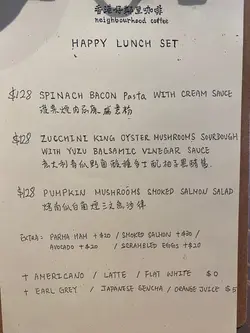 neighbourhood coffee
HAPPY LUNCH SET
$128 SPINACH BACON Pasta WITH CREAM SAUCE
$128 ZUCCHINI KING OYSTER MUSHROOMS SOURDOUGH
WITH YUZU BALSAMIC VINEGAR SAUCE
$128 PUMPKIN MUSHROOMS SMOKED SALMON SALAD
EXTRA: PARMA HAM +$20 / SMOKED SALMON +$20 /
AVOCADO +$20 / SCRAMBLED EGGS +$20
+ AMERICANO / LATTE / FLAT WHITE $0
+ EARL GREY / JAPANESE SENCHA / ORANGE JUICE $5